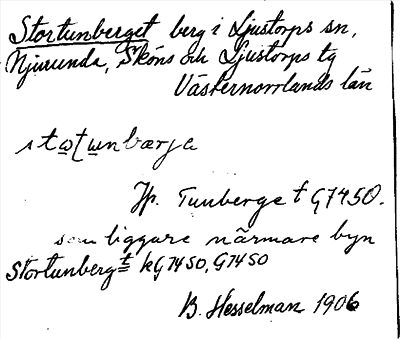 Stortunberget berg i Ljustorps sn,
Njurunda, Sköns och Ljustorps tg
Västernorrlands län
stωtunbærja
Jfr. Tunberget G7450.
som ligger närmare byn
Stortunberget kG7450, G7450
B. Hesselman 1906